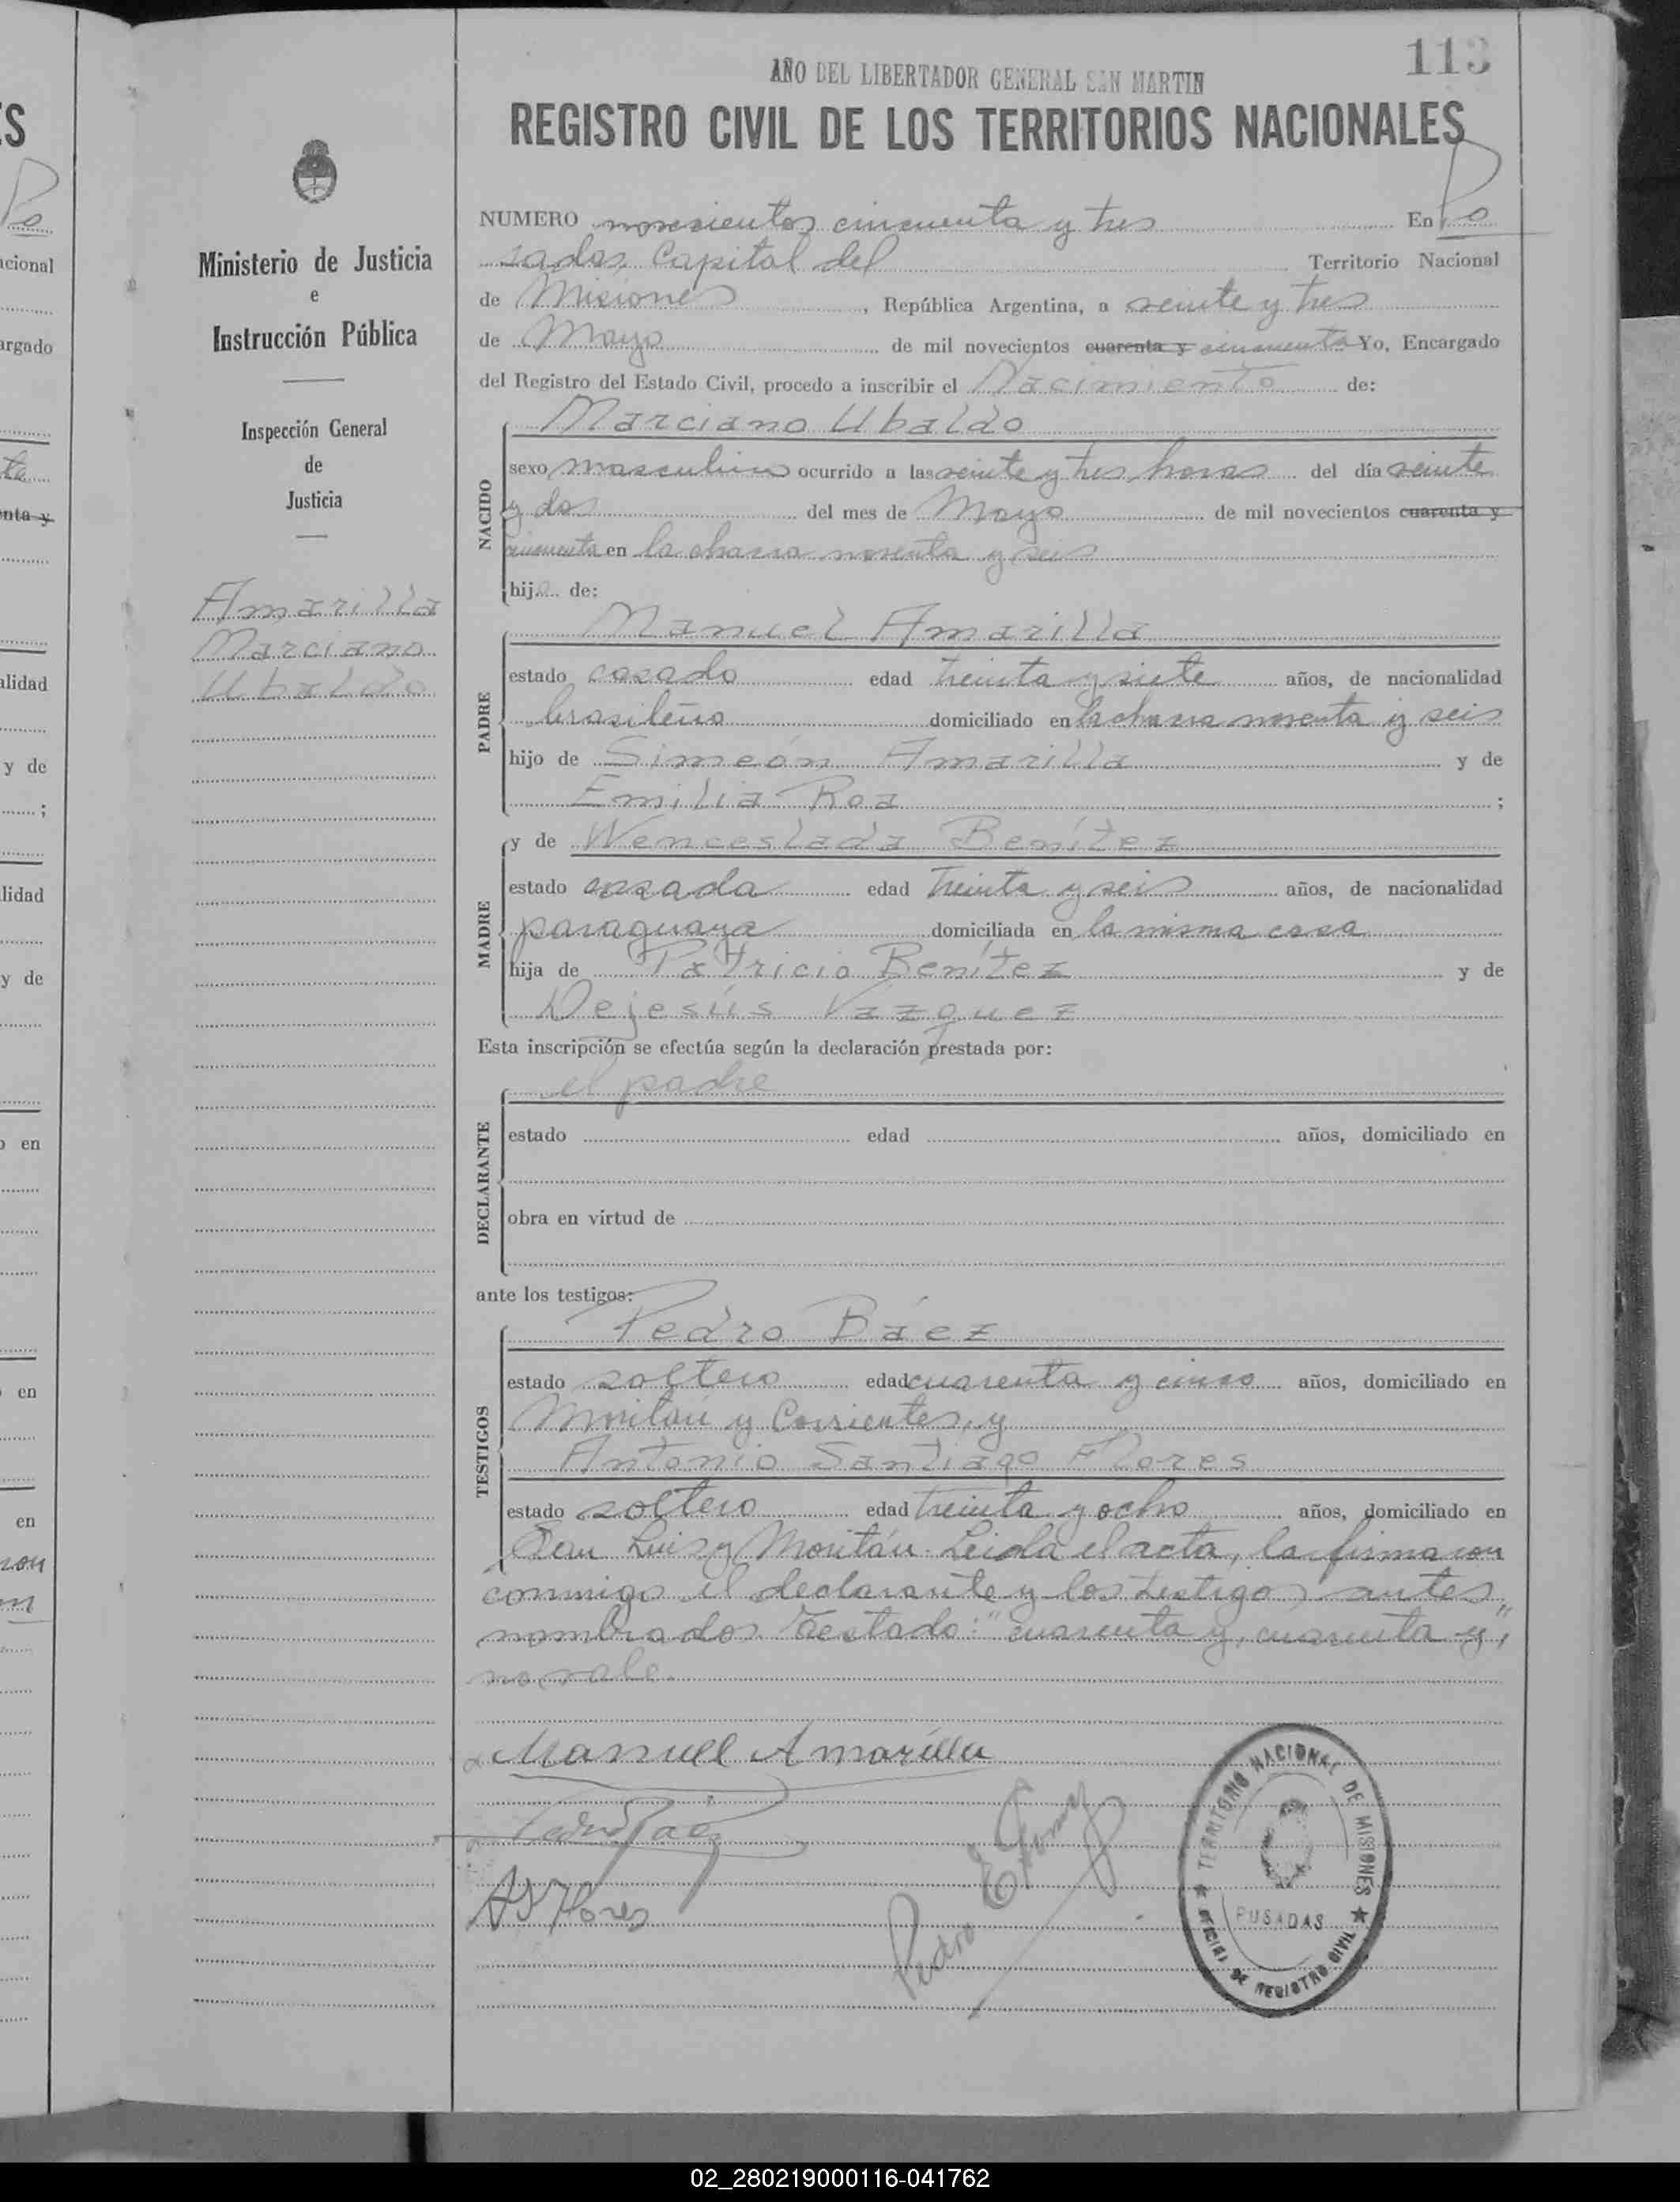 113
AÑO DEL LIBERTADOR GENERAL SAN MARTIN
REGISTRO CIVIL DE LOS TERRITORIOS NACIONALES
Ministerio de Justicia
e
Instrucción Pública
Inspección General
de
Justicia
Amarilla
Marciano
Ubaldo
NUMERO novecientos cincuenta y tres En Po
sadas Capital del Territorio Nacional
de Misiones, República Argentina, a veinte y tres
de Mayo de mil novecientos cuarenta y cincuenta Yo, Encargado
del Registro del Estado Civil, procedo a inscribir el Nacimiento de:
NACIDO
Marciano Ubaldo
sexo masculino ocurrido a las veinte y tres horas del día veinte
y dos del mes de Mayo de mil novecientos cuarenta y
cincuenta en la chacra noventa y seis
hijo de:
PADRE
Manuel Amarilla
estado casado edad treinta y siete años, de nacionalidad
brasileño domiciliado en la chacra noventa y seis
hijo de Simeón Amarilla y de
Emilia Roa ;
MADRE
y de Wenceslada Benítez
estado casada edad treinta y seis años, de nacionalidad
paraguaya domiciliada en la misma casa
hija de Patricio Benítez y de
Dejesús Vazquez
Esta inscripción se efectúa según la declaración prestada por:
el padre
DECLARANTE
estado edad años, domiciliado en
obra en virtud de
ante los testigos:
TESTIGOS
Pedro Báez
estado soltero edad cuarenta y cinco años, domiciliado en
Moritán y Corrientes, y
Antonio Santiago Flores
estado soltero edad treinta y ocho años, domiciliado en
San Luis y Moritán. Leida el acta, la firmaron
conmigo el declarante y los testigos antes
nombrados. Testado: "cuarenta y, cuarenta y",
no vale.
Manuel Amarilla
Pedro Báez
AS Flores
Pedro E
TERRITORIO NACIONAL DE MISIONES
POSADAS
OFICINA DE REGISTRO CIVIL
02_280219000116-041762